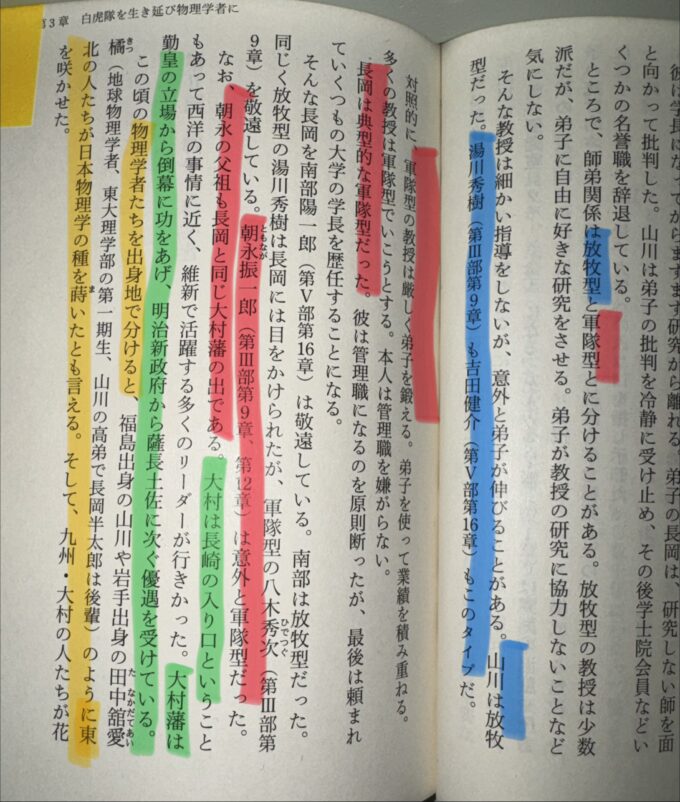 彼は学長になってからますます研究から離れる。長岡は、研究しない師を面
と向かって批判した。山川は弟子の批判を冷静に受け止め、その後学士院会員などい
くつかの名誉職を辞退している。
ところで、師弟関係は放牧型と軍隊型とに分けることがある。放牧型の教授は少数
派だが、弟子に自由に好きな研究をさせる。弟子が教授の研究に協力しないことなど
気にしない。
そんな教授は細かい指導をしないが、意外と弟子が伸びることがある。山川は放牧
型だった。湯川秀樹（第Ⅲ部第9章）も吉田健介（第Ⅴ部第16章）もこのタイプだ。
対照的に、軍隊型の教授は厳しく弟子を鍛える。弟子を使って業績を積み重ねる。
多くの教授は軍隊型でいこうとする。本人は管理職を嫌がらない。
長岡は典型的な軍隊型だった。彼は管理職になるのを原則断ったが、最後は頼まれ
ていくつもの大学の学長を歴任することになる。
そんな長岡を南部陽一郎（第Ⅴ部第16章）は敬遠している。南部は放牧型だった。
ひでつぐ
同じく放牧型の湯川秀樹は長岡には目をかけられたが、軍隊型の八木秀次（第Ⅲ部第
ともなが
9章）を敬遠している。朝永振一郎（第Ⅲ部第9章、第12章）は意外と軍隊型だった。
なお、朝永の父祖も長岡と同じ大村藩の出である。大村は長崎の入り口ということ
もあって西洋の事情に近く、維新で活躍する多くのリーダーが行きかった。大村藩は
勤皇の立場から倒幕に功をあげ、明治新政府から薩長土佐に次ぐ優遇を受けている。
たなかだてあい
この頃の物理学者たちを出身地で分けると、福島出身の山川や岩手出身の田中舘愛
きつ
橘（地球物理学者、東大理学部の第一期生、山川の高弟で長岡半太郎は後輩）のように東
ま
北の人たちが日本物理学の種を蒔いたとも言える。そして、九州・大村の人たちが花
を咲かせた。
第3章　白虎隊を生き延び物理学者に